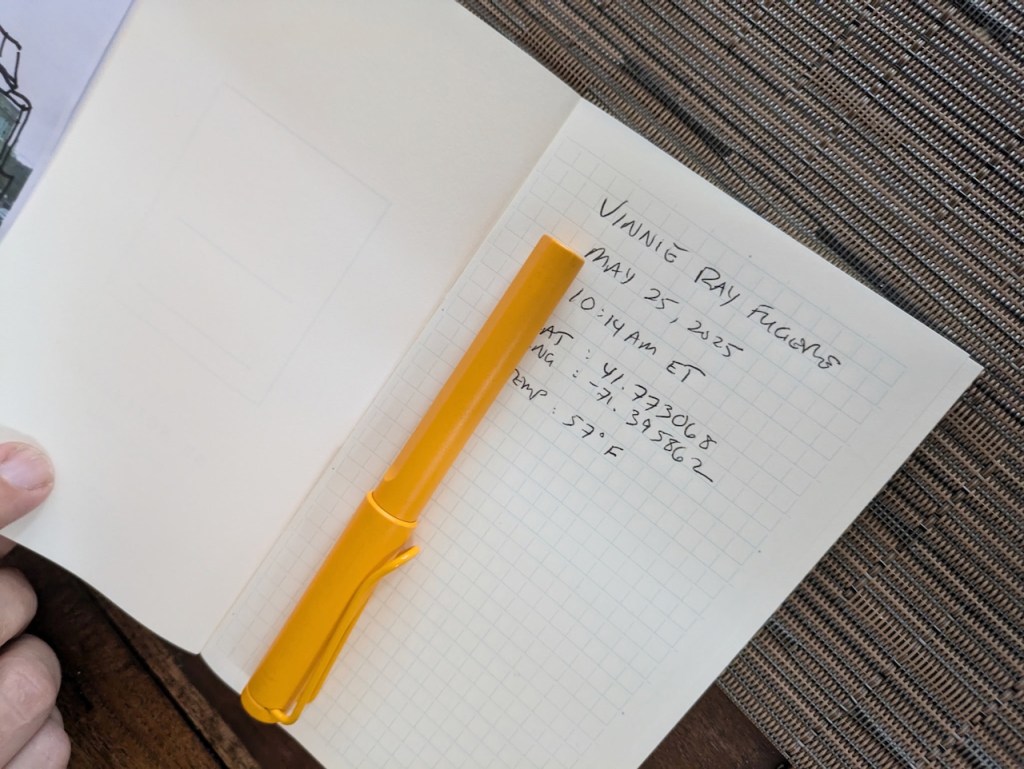 VINNIE RAY FUGERE
MAY 25, 2025
10:14 AM ET
AT : 41.773068
NG : -71.395862
EMP : 57° F